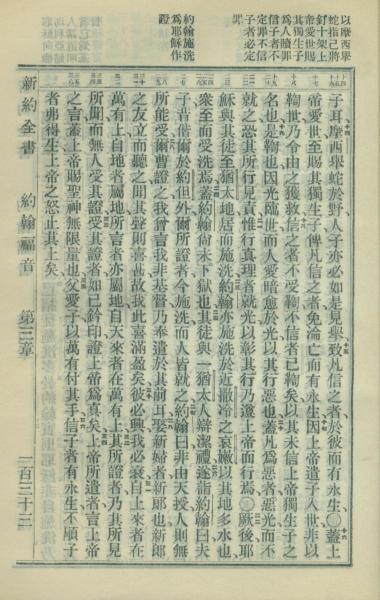 以摩西舉
蛇指己將
釘十架上
帝愛世賜
其獨生子
爲人贖罪
信子者不
定罪不信
子者必定
罪
約翰施洗
爲耶穌作
證
子耳摩西舉蛇於野人子亦必如是見舉致凡信之者於彼而有永生〇蓋上
帝愛世至賜其獨生子俾凡信之者免淪亡而有永生因上帝遣子入世非以
鞫世乃令由之獲救信之者不受鞫不信者已鞫矣以其未信上帝獨生子之
名也是鞫也因光臨世而人愛暗愈於光以其行惡也蓋凡爲惡者惡光而不
就之恐其所行見責惟行真理者就光以彰其行乃遵上帝而行焉〇厥後耶
穌與其徒至猶太地居而施洗約翰亦施洗於近撒冷之哀嫩以其地多水也
衆至而受洗焉蓋約翰尚未下獄也其徒與一猶太人辯潔禮遂詣約翰曰夫
子昔偕爾於約但外爾所證者今施洗而人皆就之約翰曰非由天授人則無
所能受爾曹證之我曾言我非基督乃奉遣於其前耳娶新婦者新郎也新郎
之友立而聽之聞其聲則喜甚故我此喜滿盈矣彼必興我必衰自上來者在
萬有上自地者屬地所言者亦屬地自天來者在萬有上其所證者乃其所見
所聞而無人受其證受其證者如已鈐印證上帝爲真矣上帝所遣者言上帝
之言蓋上帝賜聖神無限量也父愛子以萬有付其手信子者有永生不順子
者弗得生上帝之怒止其上矣
新約全書 約翰福音 第三章 二百三十二